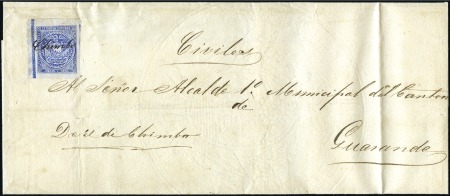 Chimbo
Civiles
Al Señor Alcalde 1º Municipal del Canton
de
Guaranda
De el de Chimbo